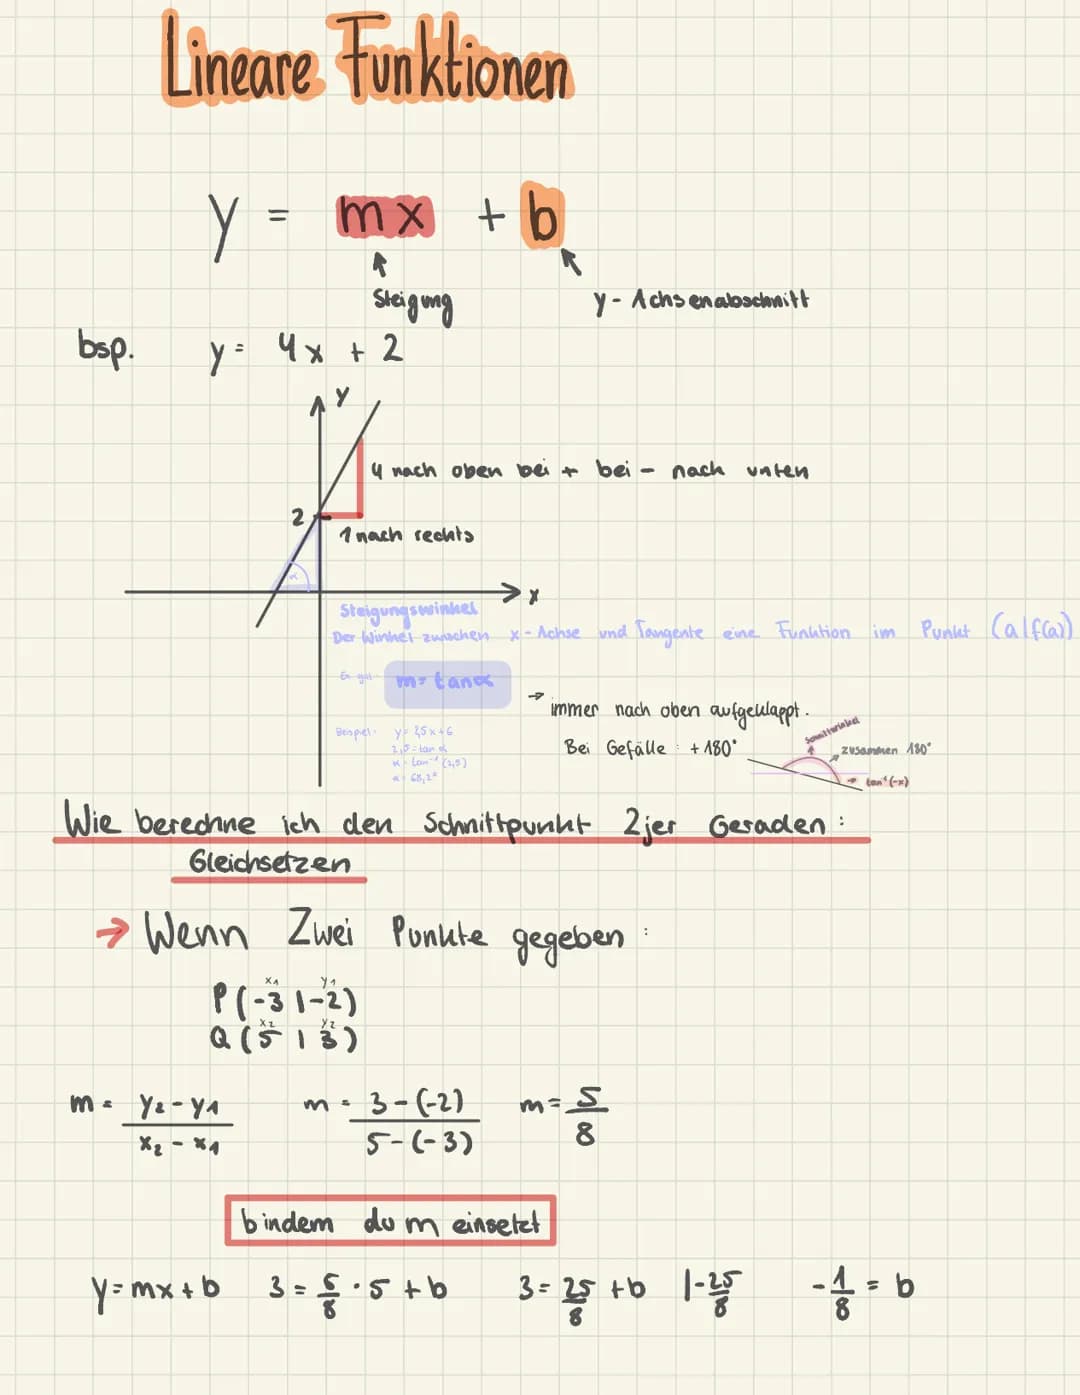 Lineare Funktionen
y = mx + b
Steigung
y - Achsenabschnitt
bsp. y = 4x + 2
y
4 nach oben bei + bei - nach unten
2
1 nach rechts
α
x
Steigungswinkel
Der Winkel zwischen x - Achse und Tangente eine Funktion im Punkt (alf(a))
Es gilt: m = tan α
→ immer nach oben aufgeklappt.
Bei Gefälle : + 180°
Schnittwinkel
zusammen 180°
→ tan⁻¹(-x)
Beispiel: y = 2,5x + 6
2,5 = tan α
α = tan⁻¹ (2,5)
α = 68,2°
Wie berechne ich den Schnittpunkt 2jer Geraden :
Gleichsetzen
→ Wenn Zwei Punkte gegeben :
x₁ y₁
P (-3 | -2)
x₂ y₂
Q (5 | 3)
m = y₂ - y₁ / x₂ - x₁ m = 3 - (-2) / 5 - (-3) m = 5/8
b indem du m einsetzt
y = mx + b 3 = 5/8 · 5 + b 3 = 25/8 + b |-25/8 -1/8 = b